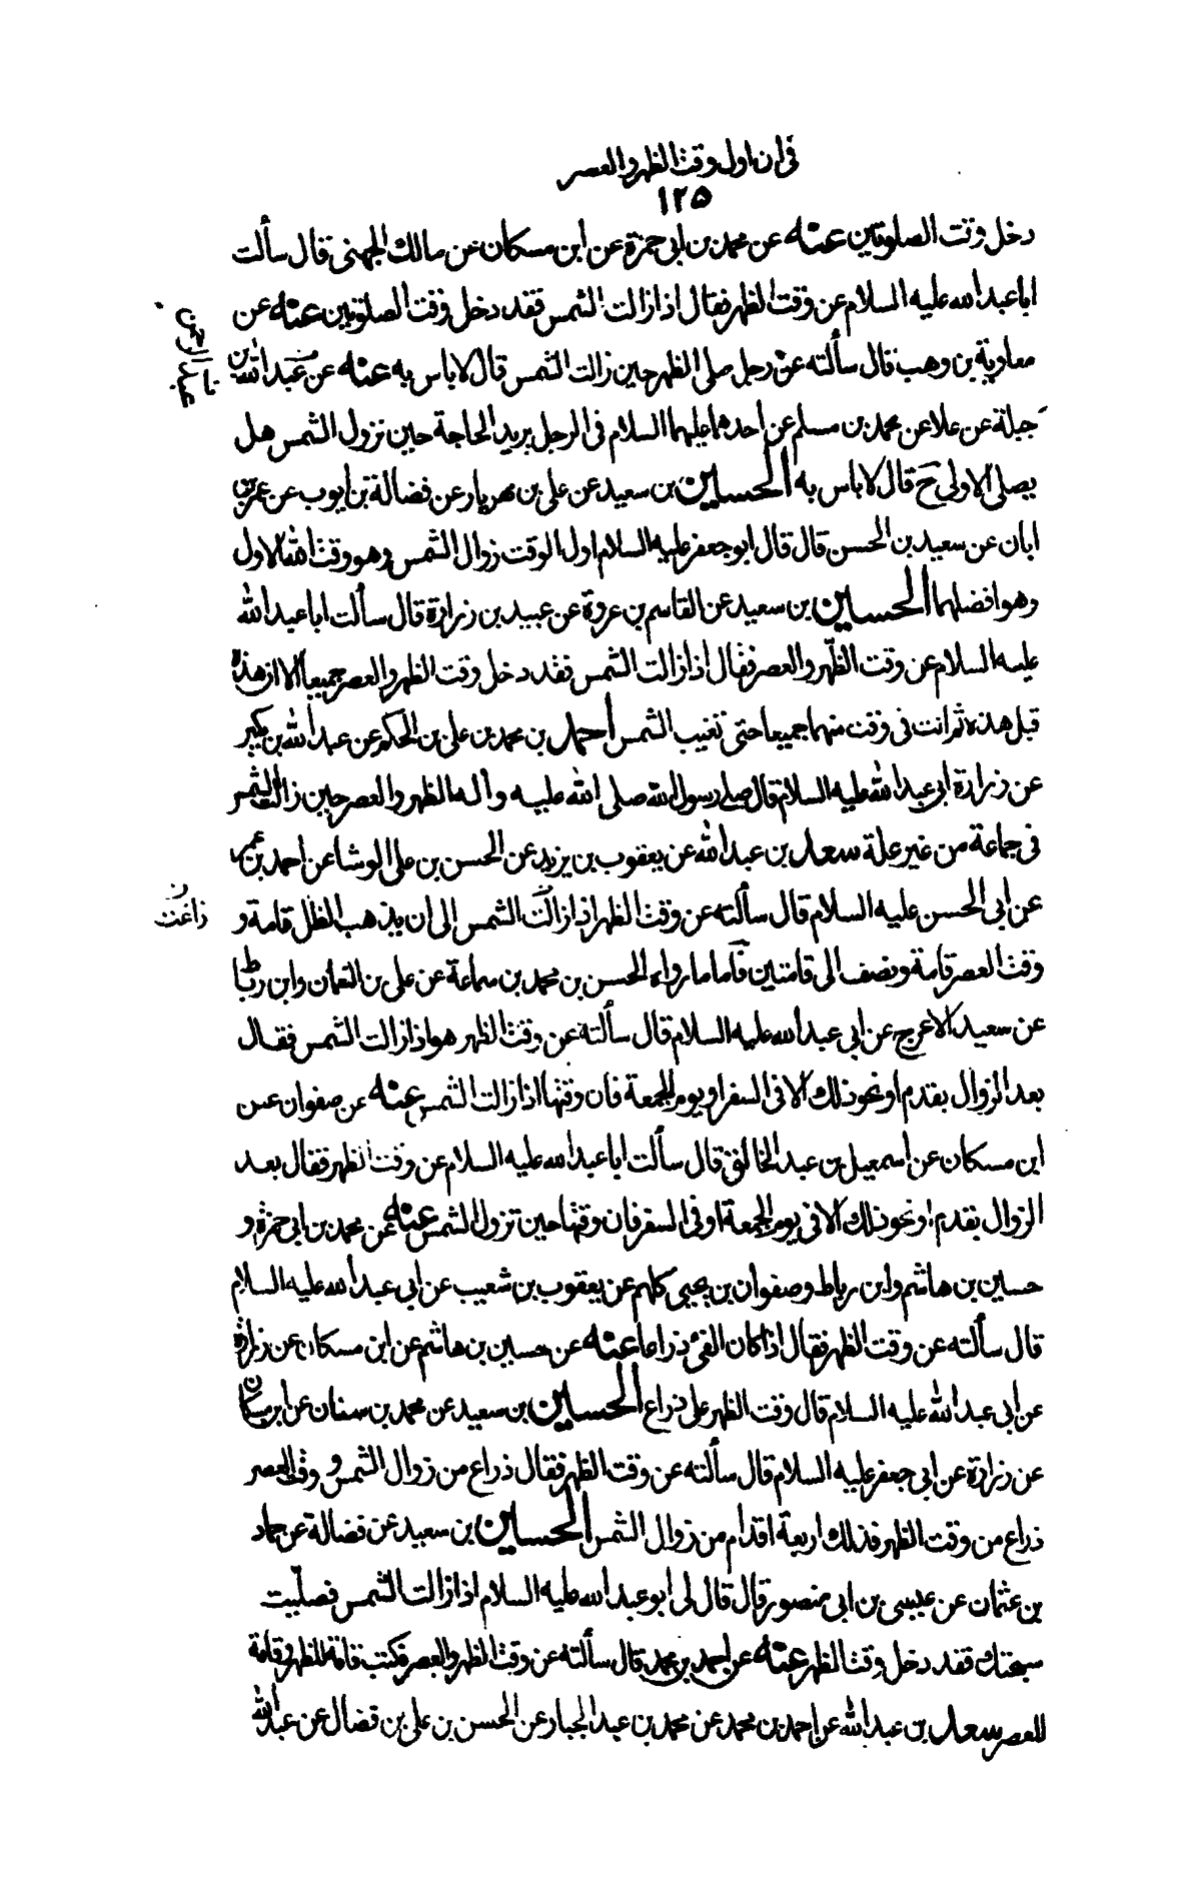 فى ان اول وقت الظهر والعصر
١٢٥
دخل وقت الصلوتين عنه عن محمد بن ابى حمزة عن ابن مسكان عن مالك الجهنى قال سألت
ابا عبد الله عليه السلام عن وقت الظهر فقال اذا زالت الشمس فقد دخل وقت الصلوتين عنه عن
معاوية بن وهب قال سألته عن رجل صلى الظهر حين زالت الشمس قال لا باس به عنه عن عبد الله بن
جبلة عن علا عن محمد بن مسلم عن احدهما عليهما السلام فى الرجل يريد الحاجة حين تزول الشمس هل
يصلى الاولى ح قال لا باس به الحسين بن سعيد عن على بن مهريار عن فضالة بن ايوب عن عمر بن
ابان عن سعيد بن الحسن قال قال ابو جعفر عليه السلام اول الوقت زوال الشمس وهو وقت الله الاول
وهو افضلهما الحسين بن سعيد عن القاسم بن عروة عن عبيد بن زرارة قال سألت ابا عبد الله
عليه السلام عن وقت الظهر والعصر فقال اذا زالت الشمس فقد دخل وقت الظهر والعصر جميعا الا ان هذه
قبل هذه ثم انت فى وقت منهما جميعا حتى تغيب الشمس احمد بن محمد بن على بن الحكم عن عبد الله بن بكير
عن زرارة ابى عبد الله عليه السلام قال صلى رسول الله صلى الله عليه وآله الظهر والعصر حين زالت الشمس
فى جماعة من غير علة سعد بن عبد الله عن يعقوب بن يزيد عن الحسن بن على الوشا عن احمد بن عمر
عن ابى الحسن عليه السلام قال سألته عن وقت الظهر اذا زالت الشمس الى ان يذهب الظل قامة و
زاغت
وقت العصر قامة ونصف الى قامتين فاما ما رواه الحسن بن محمد بن سماعة عن على بن النعمان وابن رباط
عن سعيد الاعرج عن ابى عبد الله عليه السلام قال سألته عن وقت الظهر هو اذا زالت الشمس فقال
بعد الزوال بقدم او نحو ذلك الا فى السفر او يوم الجمعة فان وقتها اذا زالت الشمس عنه عن صفوان عن
ابن مسكان عن اسمعيل بن عبد الخالق قال سألت ابا عبد الله عليه السلام عن وقت الظهر فقال بعد
الزوال بقدم او نحو ذلك الا فى يوم الجمعة او فى السفر فان وقتها حين تزول الشمس عنه عن محمد بن ابى حمزة و
حسين بن هاشم وابن رباط وصفوان بن يحيى كلهم عن يعقوب بن شعيب عن ابى عبد الله عليه السلام
قال سألته عن وقت الظهر فقال اذا كان الفئ ذراعا عنه عن حسين بن هاشم عن ابن مسكان عن زرارة
عن ابى عبد الله عليه السلام قال وقت الظهر على ذراع الحسين بن سعيد عن محمد بن سنان عن ابن مسكان
عن زرارة عن ابى جعفر عليه السلام قال سألته عن وقت الظهر فقال ذراع من زوال الشمس و وقت العصر
ذراع من وقت الظهر فذلك اربعة اقدام من زوال الشمس الحسين بن سعيد عن فضالة عن حماد
بن عثمان عن عيسى بن ابى منصور قال قال لى ابو عبد الله عليه السلام اذا زالت الشمس فصليت
سبحتك فقد دخل وقت الظهر عنه عن احمد بن محمد قال سألته عن وقت الظهر والعصر فكتب قامة للظهر وقامة
للعصر سعد بن عبد الله عن احمد بن محمد عن محمد بن عبد الجبار عن الحسن بن على بن فضال عن عبد الله